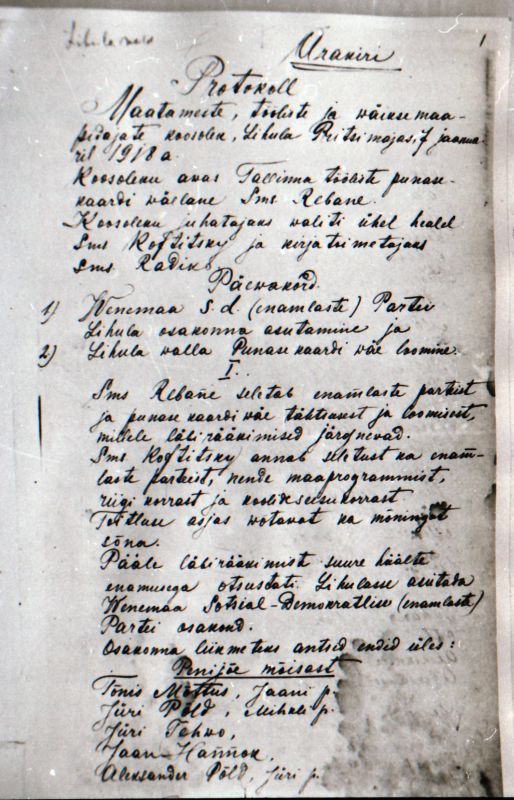 Lihula
1
Ärakiri
Protokoll
Maatameeste, tööliste ja wäiksemaa-
pidajate koosolek, Lihula Pritsimajas, 7 jaanua-
ril 1918 a.
Koosoleku awas Tallinna tööliste punase-
kaardi wäelane Sms Rebane.
Koosoleku juhatajaks waliti ühel healel
Sms Kogtitsky ja kirjatoimetajaks
sms Radik
Päewakord.
1) Wenemaa S. d. (enamlaste) Partei
Lihula osakonna asutamine ja
2) Lihula walla Punase kaardi wäe loomine.
I.
Sms Rebane seletab enamlaste parteist
ja punase kaardi wäe tähtsusest ja loomisest,
millele läbirääkimised järgnewad.
Sms Kogtitsky annab seletust ka enam-
laste parteist, nende maaprogrammist,
riigi korrast ja koolideseisukorrast
asjas wotawat ka mõningat
sõna.
Pääle läbirääkimist suure häälte
enamusega otsustati Lihulasse asutada
Wenemaa Sotsial-Demokratlise (enamlaste)
Partei osakond.
Osakonna liikmeteks antsed endid üles:
Penijõe mõisast
Tõnis Mõttus, Jaani p.
Jüri Põld, Mihkli p.
Jüri Tahwo,
Jaan Hannok,
Aleksander Põld, Jüri p.